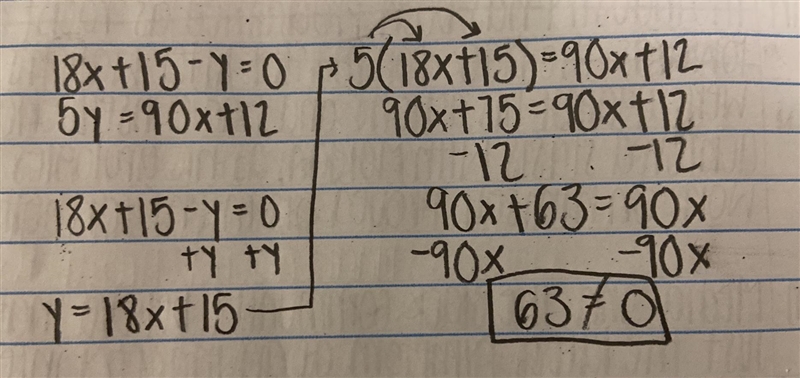 18x+15-y=0
5y=90x+12
18x+15-y=0
+y +y
y=18x+15
5(18x+15)=90x+12
90x+75=90x+12
-12 -12
90x+63=90x
-90x -90x
63≠0